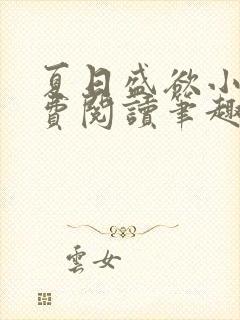 夏日盛欲小
費閱讀筆趣
雲女